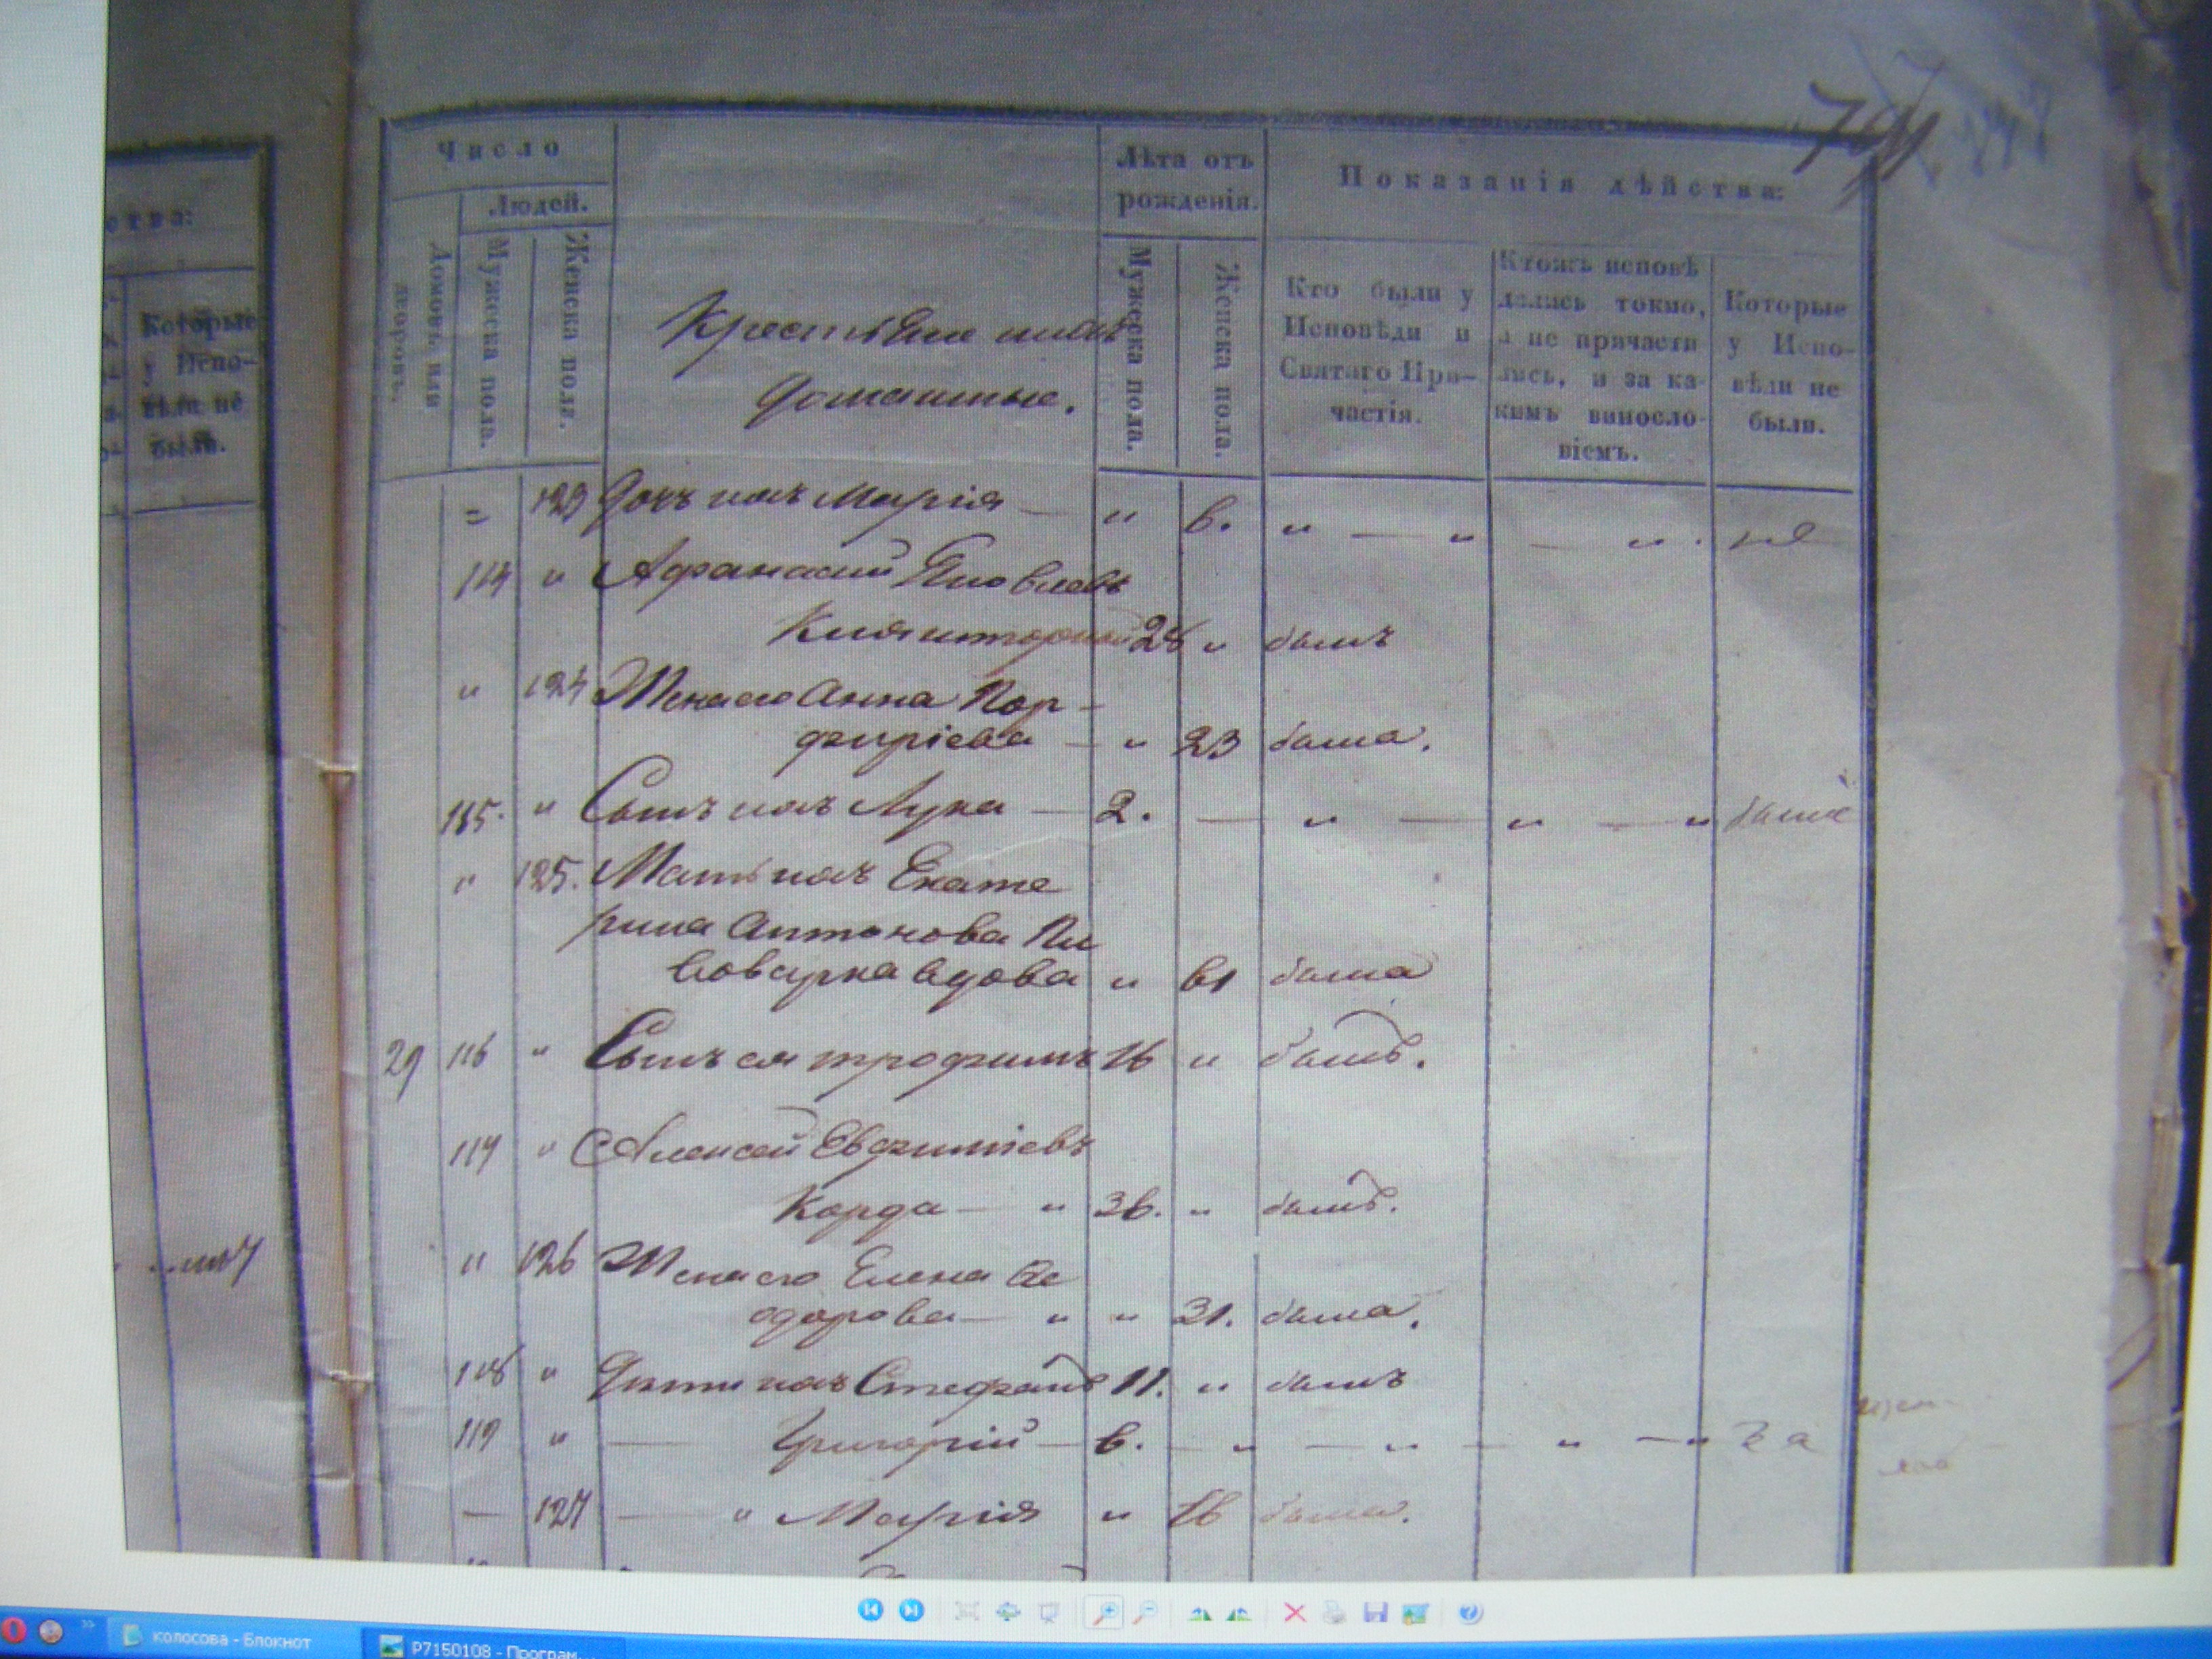 ства:
Которые
у Испо-
вѣди не
были.
Число
Людей.
Домовъ или
дворовъ.
Мужеска пола.
Женска пола.
Крестьяне и ихъ
домашние.
Лѣта отъ
рожденія.
Мужеска пола.
Женска пола.
Показанія дѣйства:
Кто были у
Исповѣди и
Святаго При-
частія.
Ктожъ исповѣ
дались токмо,
а не причасти
лись, и за ка-
кимъ винословіемъ.
Которые
у Испо-
вѣди не
были.
= 123 Дочь ихъ Марія — " 6. " — " — " .
114 " Афанасий Яковлевъ
28 " былъ
" 124 Жена его Анна Пор-
фиріева — " 23 была.
115. " Сынъ ихъ Лука — 2. — " — " — "
" 125. Мать ихъ Екате
рина Антонова Пи
воварка вдова " 61 была
29 116 " Сынъ ея Трофимъ 16 " былъ.
117 " Алексей Евфиміевъ
Корда — " 36. " былъ.
" 126 Жена его Елена Ѳе
одорова — " " 31. была.
118 " Дѣти ихъ Стефанъ 11. " былъ
119 " — Григорій — 6. — " — " — " — "
— 127 — " Марія " 16 была.
колосова - Блокнот
P7150108 - Програм...